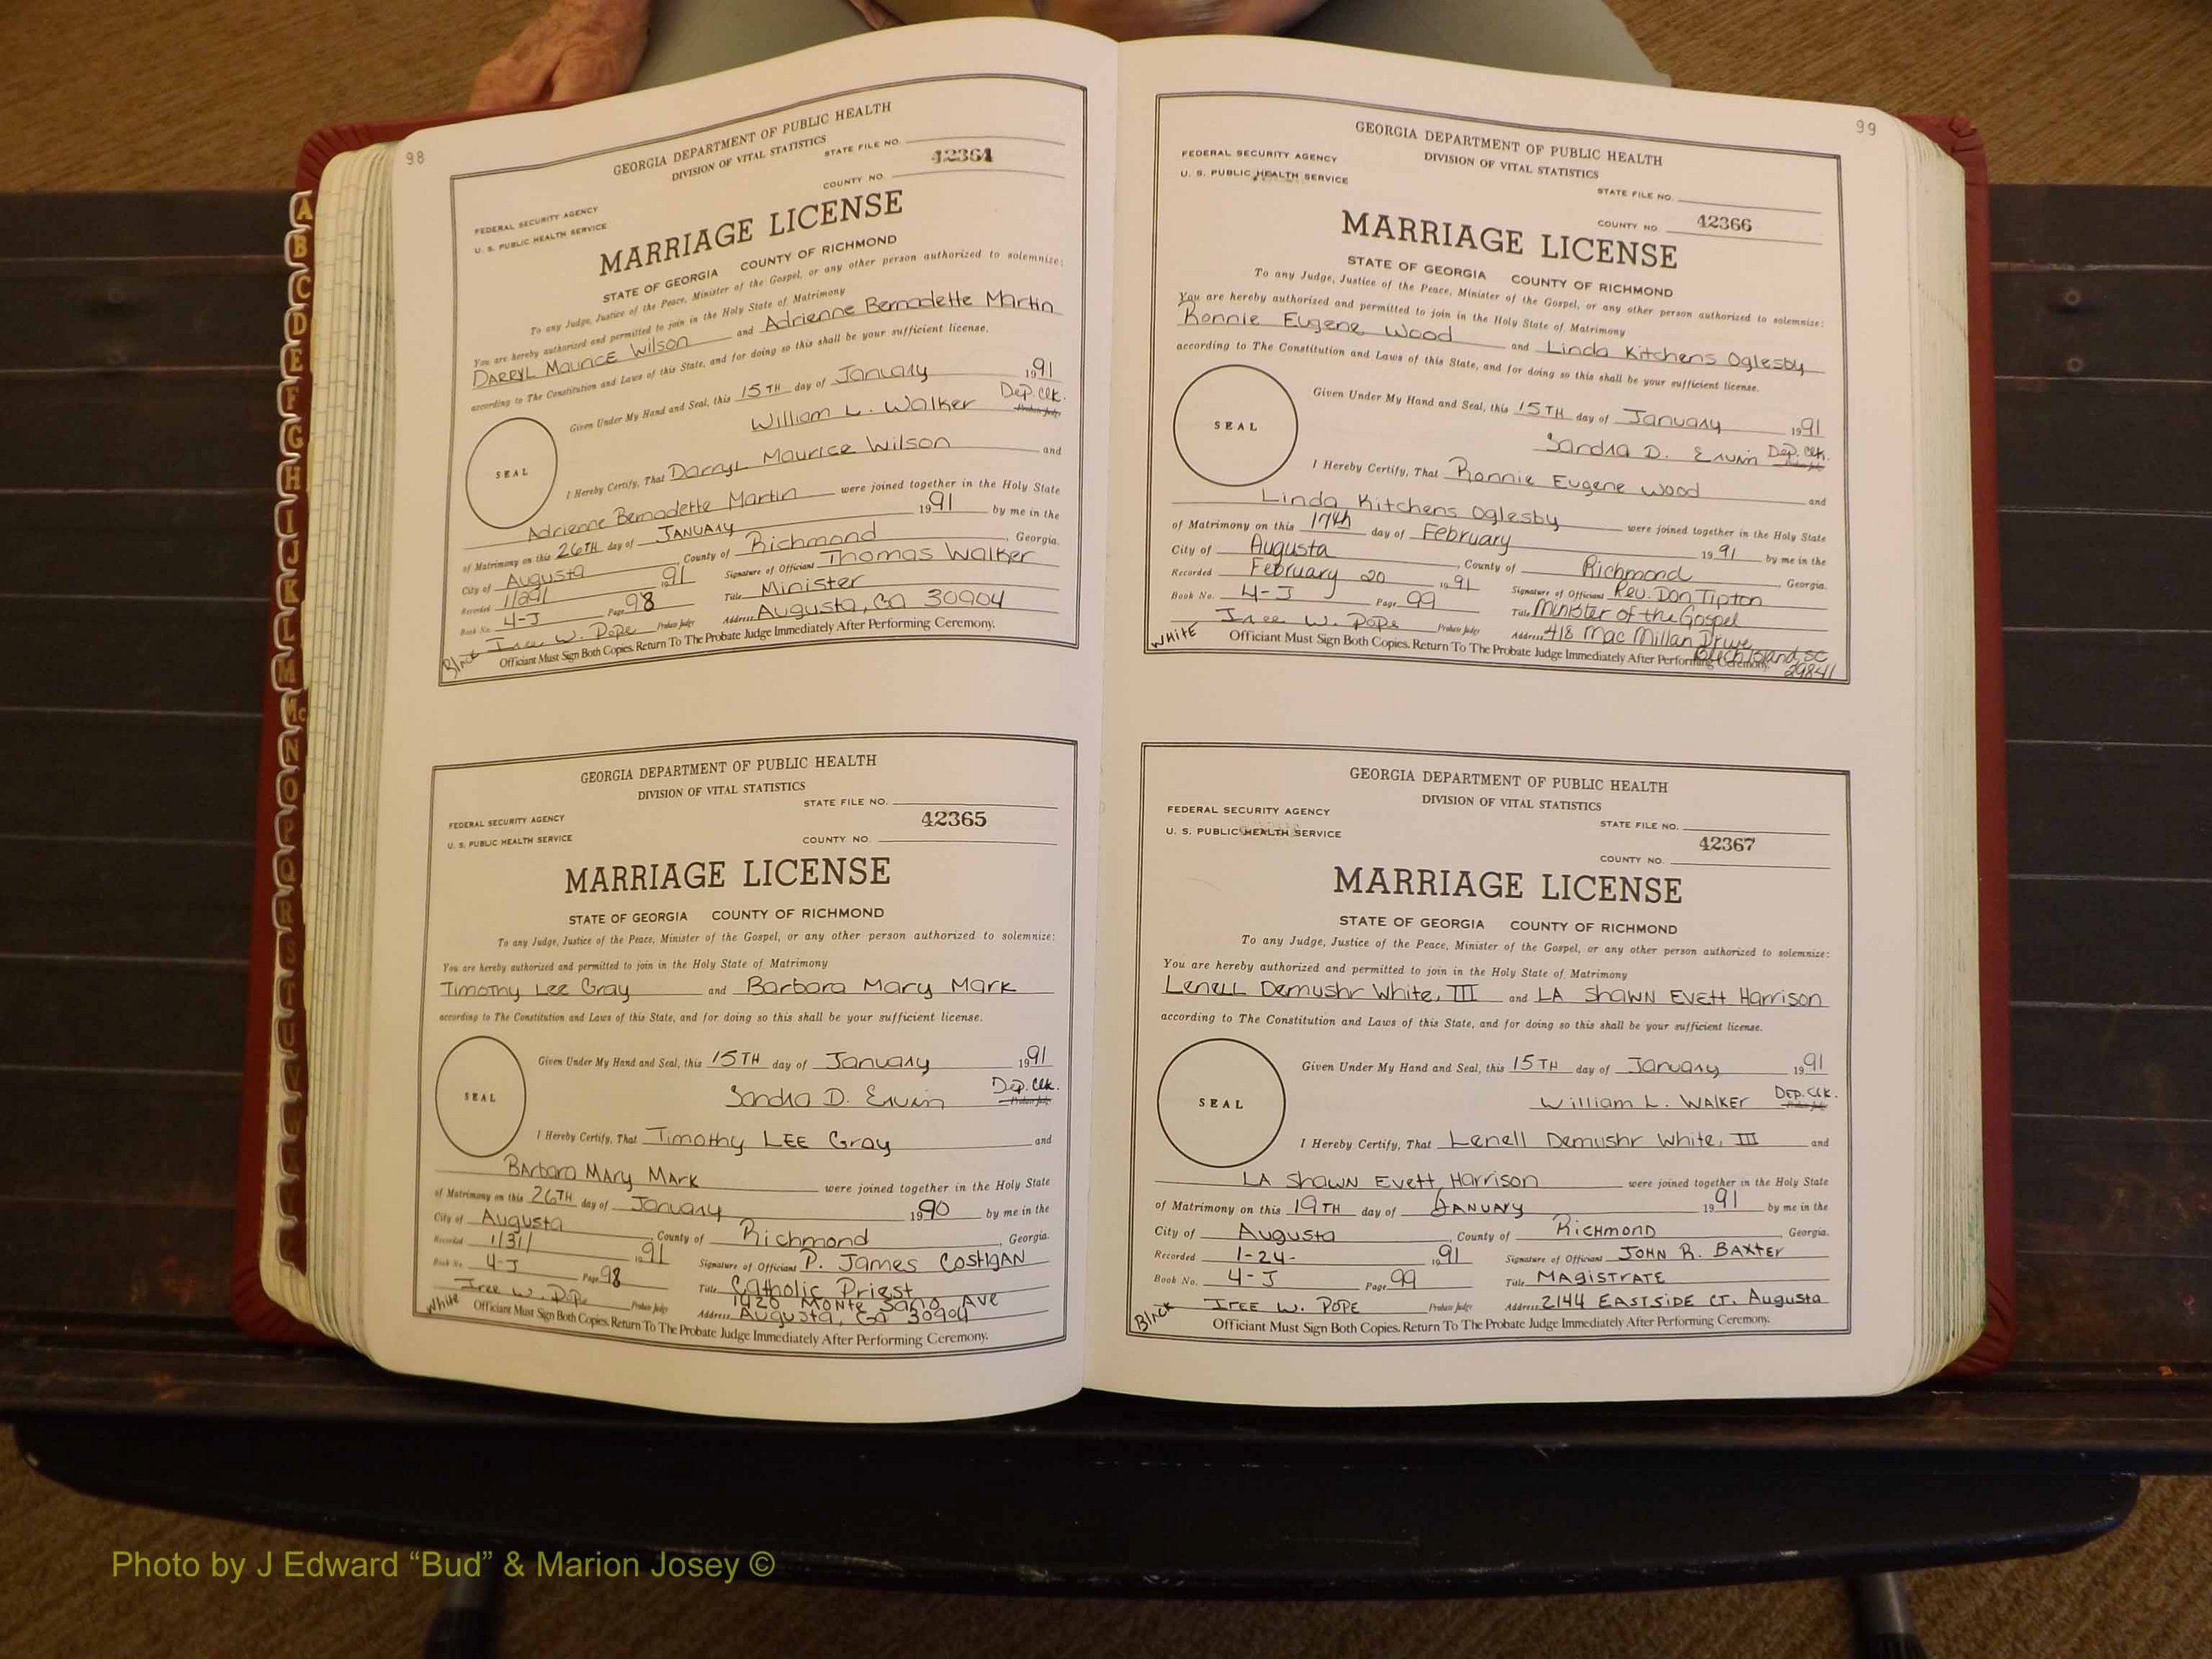 98
GEORGIA DEPARTMENT OF PUBLIC HEALTH
DIVISION OF VITAL STATISTICS
STATE FILE NO.
42364
COUNTY NO.
FEDERAL SECURITY AGENCY
U. S. PUBLIC HEALTH SERVICE
MARRIAGE LICENSE
STATE OF GEORGIA COUNTY OF RICHMOND
To any Judge, Justice of the Peace, Minister of the Gospel, or any other person authorized to solemnize:
You are hereby authorized and permitted to join in the Holy State of Matrimony
DARRYL Maurice Wilson and Adrienne Bernadette Martin
according to The Constitution and Laws of this State, and for doing so this shall be your sufficient license.
Given Under My Hand and Seal, this 15TH day of January 1991
William L. Walker Dep. Clk.
Probate Judge
SEAL
I Hereby Certify, That Darryl Maurice Wilson and
Adrienne Bernadette Martin were joined together in the Holy State
of Matrimony on this 26TH day of JANUARY 1991 by me in the
City of Augusta, County of Richmond, Georgia.
Recorded 1/29/ 1991 Signature of Officiant Thomas Walker
Book No. 4-J Page 98 Title Minister
Iree W. Pope Probate Judge Address Augusta, Ga 30904
Black Officiant Must Sign Both Copies. Return To The Probate Judge Immediately After Performing Ceremony.
GEORGIA DEPARTMENT OF PUBLIC HEALTH
DIVISION OF VITAL STATISTICS
STATE FILE NO.
FEDERAL SECURITY AGENCY 42365
U. S. PUBLIC HEALTH SERVICE COUNTY NO.
MARRIAGE LICENSE
STATE OF GEORGIA COUNTY OF RICHMOND
To any Judge, Justice of the Peace, Minister of the Gospel, or any other person authorized to solemnize:
You are hereby authorized and permitted to join in the Holy State of Matrimony
Timothy Lee Gray and Barbara Mary Mark
according to The Constitution and Laws of this State, and for doing so this shall be your sufficient license.
Given Under My Hand and Seal, this 15TH day of January 1991
Sandra D. Ervin Dep. Clk.
Probate Judge
SEAL
I Hereby Certify, That Timothy LEE Gray and
BArbara MAry MArk were joined together in the Holy State
of Matrimony on this 26TH day of January 1990 by me in the
City of Augusta, County of Richmond, Georgia.
Recorded 1/31/ 1991 Signature of Officiant P. James COSTIGAN
Book No. 4-J Page 98 Title Catholic Priest
1420 Monte Sano Ave
Iree W. Pope Probate Judge Address Augusta, Ga 30904
White Officiant Must Sign Both Copies. Return To The Probate Judge Immediately After Performing Ceremony.
99
GEORGIA DEPARTMENT OF PUBLIC HEALTH
FEDERAL SECURITY AGENCY DIVISION OF VITAL STATISTICS
U. S. PUBLIC HEALTH SERVICE
STATE FILE NO.
COUNTY NO. 42366
MARRIAGE LICENSE
STATE OF GEORGIA COUNTY OF RICHMOND
To any Judge, Justice of the Peace, Minister of the Gospel, or any other person authorized to solemnize:
You are hereby authorized and permitted to join in the Holy State of Matrimony
Ronnie Eugene Wood and Linda Kitchens Oglesby
according to The Constitution and Laws of this State, and for doing so this shall be your sufficient license.
Given Under My Hand and Seal, this 15TH day of January 1991
Sandra D. Ervin Dep. Clk.
SEAL
I Hereby Certify, That Ronnie Eugene Wood and
Linda Kitchens Oglesby were joined together in the Holy State
of Matrimony on this 17th day of February 1991 by me in the
City of Augusta, County of Richmond, Georgia.
Recorded February 20 1991 Signature of Officiant Rev. Don Tipton
Book No. 4-J Page 99 Title Minister of the Gospel
Iree W. Pope Probate Judge Address 418 Mac Millan Drive
Beech Island, SC
29841
WHITE Officiant Must Sign Both Copies. Return To The Probate Judge Immediately After Performing Ceremony.
GEORGIA DEPARTMENT OF PUBLIC HEALTH
DIVISION OF VITAL STATISTICS
FEDERAL SECURITY AGENCY
STATE FILE NO.
U. S. PUBLIC HEALTH SERVICE 42367
COUNTY NO.
MARRIAGE LICENSE
STATE OF GEORGIA COUNTY OF RICHMOND
To any Judge, Justice of the Peace, Minister of the Gospel, or any other person authorized to solemnize:
You are hereby authorized and permitted to join in the Holy State of Matrimony
Lenell Demushr White, III and LA ShAWN EVETT Harrison
according to The Constitution and Laws of this State, and for doing so this shall be your sufficient license.
Given Under My Hand and Seal, this 15TH day of January 1991
William L. WALKER DEP. Clk.
SEAL
I Hereby Certify, That Lenell Demushr White, III and
LA ShAWN Evett Harrison were joined together in the Holy State
of Matrimony on this 19TH day of JANUARY 1991 by me in the
City of Augusta, County of RICHMOND, Georgia.
Recorded 1-24- 1991 Signature of Officiant JOHN R. BAXTER
Book No. 4-J Page 99 Title MAGISTRATE
IREE W. POPE Probate Judge Address 2144 EASTSIDE CT. Augusta
Black Officiant Must Sign Both Copies. Return To The Probate Judge Immediately After Performing Ceremony.
A
B
C
D
E
F
G
H
I
J
K
L
M
Mc
N
O
P
Q
R
S
T
U
V
W
Photo by J Edward “Bud” & Marion Josey ©